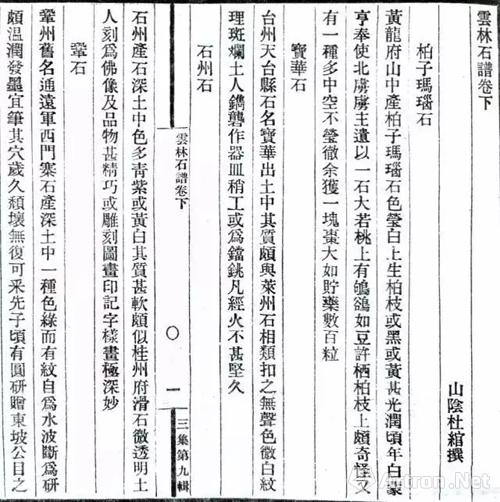 雲林石譜卷下
山陰杜綰撰
柏子瑪瑙石
黃龍府山中產柏子瑪瑙石色瑩白上生柏枝或黑或黃甚光潤頃年白蒙
亨奉使北虜虜主遺以一石大若桃上有鴝鵒如豆許栖柏枝上頗奇怪又
有一種多中空不瑩徹余獲一塊棗大如貯藥數百粒
寶華石
台州天台縣石名寶華出土中其質頗與萊州石相類扣之無聲色微白紋
理斑斕土人鐫礱作器皿稍工或為鐺銚凡經火不甚堅久
雲林石譜卷下
一
三集第九輯
石州石
石州產石深土中色多青紫或黃白其質甚軟頗似桂州府滑石微透明土
人刻為佛像及品物甚精巧或雕刻圖畫印記字樣畫極深妙
鞏石
鞏州舊名通遠軍西門寨石產深土中一種色綠而有紋自為水波斷為研
頗溫潤發墨宜筆其穴歲久頹壞無復可采先子頃有圓研贈東坡公目之
Artron.Net